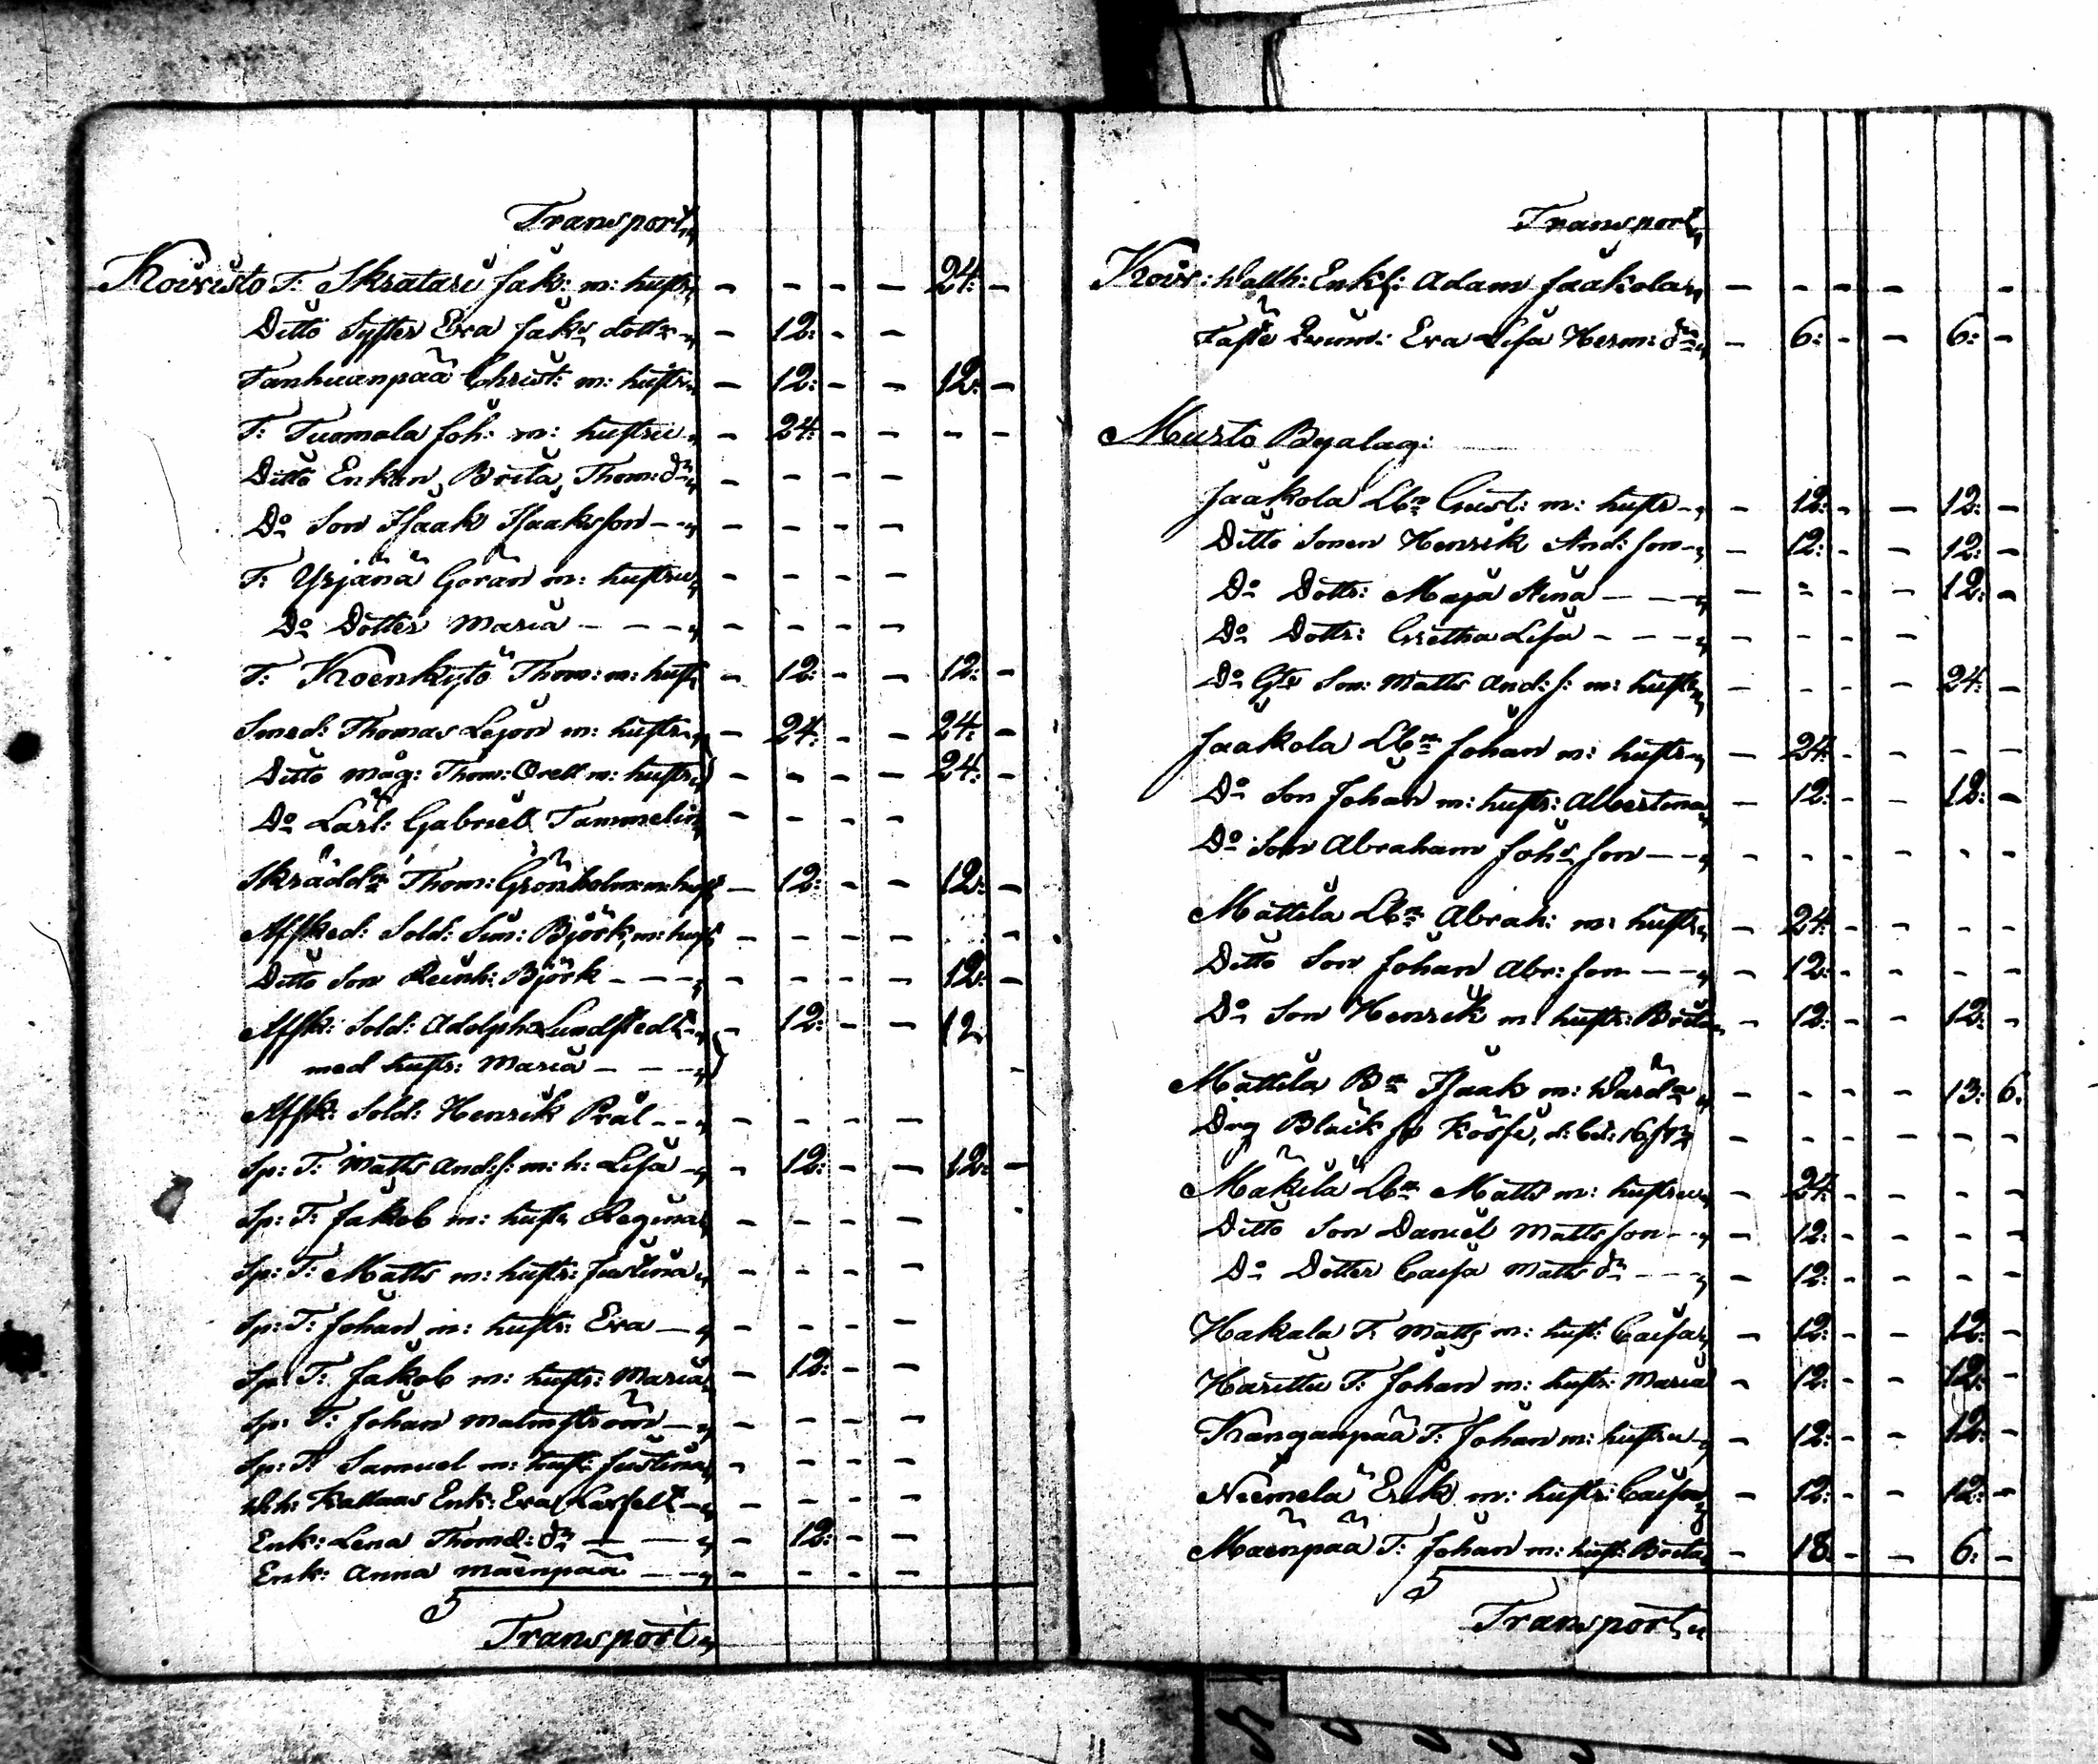 Transport
Koivisto T: Skratari Jak: m: hustr - - - - 24: -
Ditto Syster Eva Jaks dottr - 12: - -
Tanhuanpää Christ: m: hustr - 12: - - 12: -
T: Tuomala Joh: m: hustru - 24: - - - -
Ditto Enkan Brita Thom: dr - - - -
Do Son Isaak Isaaksson - - - -
T: Yrjänä Göran m: hustru - - - -
Do Dotter Maria - - - -
T: Koenkytö Thom: m: hustr - 12: - - 12: -
Smed: Thomas Lejon m: hustr - 24: - - 24: -
Ditto måg: Thom: Orell m: hustr - - - - 24: -
Do Lärl: Gabriel Tammelin - - - -
Skräddn Thom: Grönholm m: hust - 12: - - 12: -
Afsked: Sold: Sim: Björk, m: hust - - - - -
Ditto Son Reinh: Björk - - - - 12: -
Afsk: Sold: Adolph Lundstedt - 12: - - 12
med hustr: Maria - - - -
Afsk: Sold: Henrik Pral - - - -
Sp: T: Matts And: s: m: h: Lisa - 12: - - 12: -
Sp: T: Jakob m: hustr Regina - - - -
Sp: T: Matts m: hustr: Justina - - - -
Sp: T: Johan m: hustr: Eva - - - -
Sp: T: Jakob m: hustr: Maria - 12: - -
Sp: T: Johan Malmström - - - -
Sp: T: Samuel m: hust: Justina - - - -
Kallaas Enk: Eva - - - -
Enk: Lena Thom: dr - 12: - -
Enk: Anna Mäenpää - - - -
Transport
Transport
Koiv: Wallh: Enkl: Adam Jaakola - - - - -
Eva Lisa Herm: dr - 6: - - 6: -
Murto Byalag:
Jaakola Lbn Gust: m: hustr - 12: - - 12: -
Ditto Sonen Henrik And: son - 12: - - 12: -
Do Dottr: Maja Stina - - - - 12: -
Do Dottr: Gretha Lisa - - - -
Do Son: Matts And: s: m: hustr - - - - 24: -
Jaakola Lbn Johan m: hustr - 24: - - - -
Do Son Johan m: hustr: Albertina - 12: - - 12: -
Do Son Abraham Johs son - - - - - -
Mattila Lbn Abrah: m: hustr - 24: - - - -
Ditto Son Johan Abr: son - 12: - - - -
Do Son Henrik m: hustr: Brita - 12: - - 12: -
Mattila Bn Isaak m: - - - - 13: 6.
Drg - - - - - -
Mäkilä Lbn Matts m: hustru - 24: - - - -
Ditto Son Daniel Mattsson - 12: - - - -
Do Dotter Caisa Matts dr - 12: - - - -
Hakala T: Matts m: hust: Caisa - 12: - - 12: -
Harittu T: Johan m: hustr: Maria - 12: - - 12: -
Kanganpää T: Johan m: hustru - 12: - - 12: -
Niemelä Erik m: hustr: Caisa - 12: - - 12: -
Mäenpää T: Johan m: hust: Brita - 18: - - 6: -
Transport